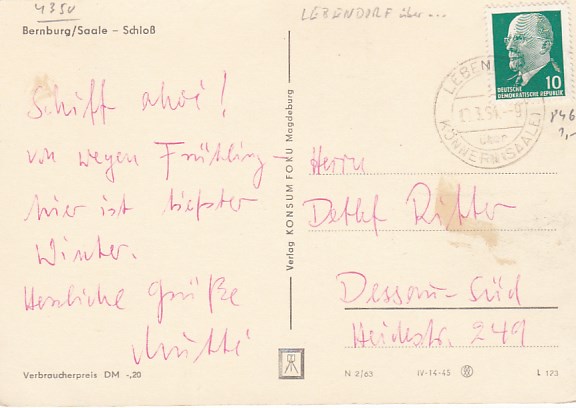 4350
LEBENDORF über...
Bernburg/Saale – Schloß
Schiff ahoi!
von wegen Frühling –
hier ist tiefster
Winter.
Herzliche Grüße
Mutti
Verbraucherpreis DM -,20
Verlag KONSUM FOKU Magdeburg
DEUTSCHE
DEMOKRATISCHE REPUBLIK
10
über
KÖNNERN (SAALE)
Herrn
Detlef Ritter
Dessau-Süd
Heidestr. 249
N 2/63
IV-14-45
L 173